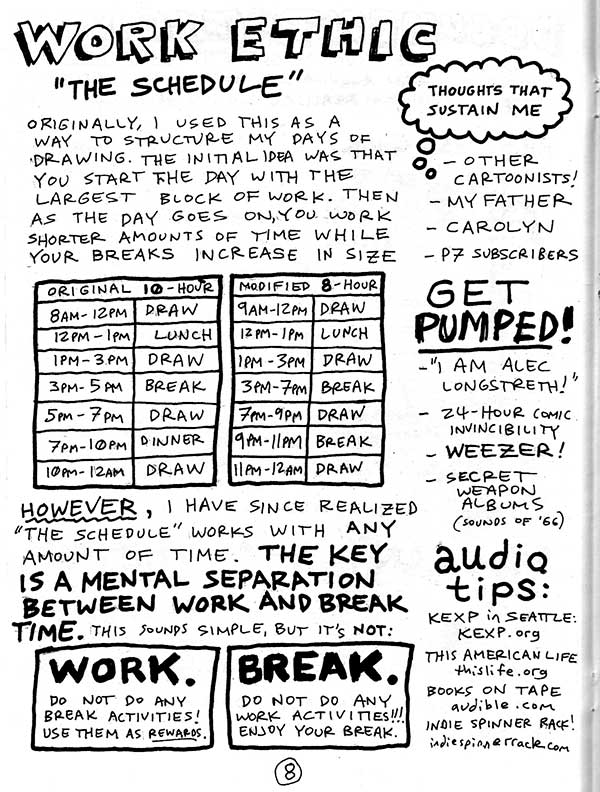 WORK ETHIC
"THE SCHEDULE"
ORIGINALLY, I USED THIS AS A
WAY TO STRUCTURE MY DAYS OF
DRAWING. THE INITIAL IDEA WAS THAT
YOU START THE DAY WITH THE
LARGEST BLOCK OF WORK. THEN
AS THE DAY GOES ON, YOU WORK
SHORTER AMOUNTS OF TIME WHILE
YOUR BREAKS INCREASE IN SIZE
ORIGINAL 10-HOUR
8AM-12PM DRAW
12PM-1PM LUNCH
1PM-3PM DRAW
3PM-5PM BREAK
5PM-7PM DRAW
7PM-10PM DINNER
10PM-12AM DRAW
MODIFIED 8-HOUR
9AM-12PM DRAW
12PM-1PM LUNCH
1PM-3PM DRAW
3PM-7PM BREAK
7PM-9PM DRAW
9PM-11PM BREAK
11PM-12AM DRAW
HOWEVER, I HAVE SINCE REALIZED
"THE SCHEDULE" WORKS WITH ANY
AMOUNT OF TIME. THE KEY
IS A MENTAL SEPARATION
BETWEEN WORK AND BREAK
TIME. THIS SOUNDS SIMPLE, BUT IT'S NOT:
WORK.
DO NOT DO ANY
BREAK ACTIVITIES!
USE THEM AS REWARDS.
BREAK.
DO NOT DO ANY
WORK ACTIVITIES!!!
ENJOY YOUR BREAK.
THOUGHTS THAT
SUSTAIN ME
- OTHER
CARTOONISTS!
- MY FATHER
- CAROLYN
- P7 SUBSCRIBERS
GET
PUMPED!
- "I AM ALEC
LONGSTRETH!"
- 24-HOUR COMIC
INVINCIBILITY
- WEEZER!
- SECRET
WEAPON
ALBUMS
(SOUNDS OF '66)
audio
tips:
KEXP in SEATTLE:
KEXP.org
THIS AMERICAN LIFE
thislife.org
BOOKS ON TAPE
audible.com
INDIE SPINNER RACK!
indiespinnerrack.com
8